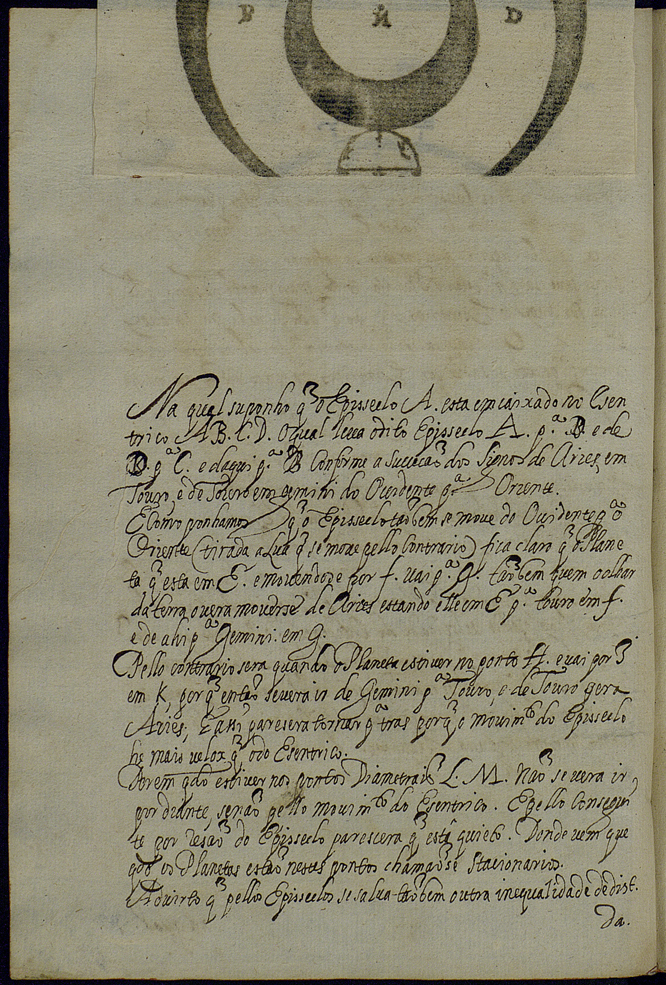 B N D
Na qual suponho q̃ o Episseclo A. esta emcaixado no Esen
trico A B. C. D. O qual leva o dito Episseclo A. p.ª B e de
D. p.ª C. e daqui p.ª B Conforme a Sucecaõ dos Signos de Aries, em
Touro, e de Touro em gemini do Ocidente p.ª Oriente.
E Como ponhamos q̃ o Episseclo taõbem se move do Ocidente p.ª o
Oriente (tirada a Lua q̃ se move pello Contrario) fica claro q̃ o Plane
ta q̃ esta em E. e movendose por f. vai p.ª G. taõbem quem o olhar
da terra o vera moverse de Aries estando elle em E p.ª touro em f.
e de ahi p.ª Gemini. em G.
Pello contrario sera quando o Planeta estiver no ponto H. e vai por I
em K, por q̃ entaõ se vera ir de Gemini p.ª Touro, e de Touro pera
Aries, E assi paresera tornar p.ª tras porq̃ o movim.to do Episseclo
he mais velox q̃ o do Esentrico.
Porem q.do estiver nos pontos Diametrais L. M. Naõ se vera ir
por diante, senaõ pello movim.to do Esentrico. E pello Consegui
te por resaõ do Episseclo parescera q̃ está quieto. Donde vem que
q.do os Planetas estaõ nestes pontos chamaõse Stacionarios.
Advirto q̃ pellos Episseclos se salva taõbem outra inequalidade de dist.
da.